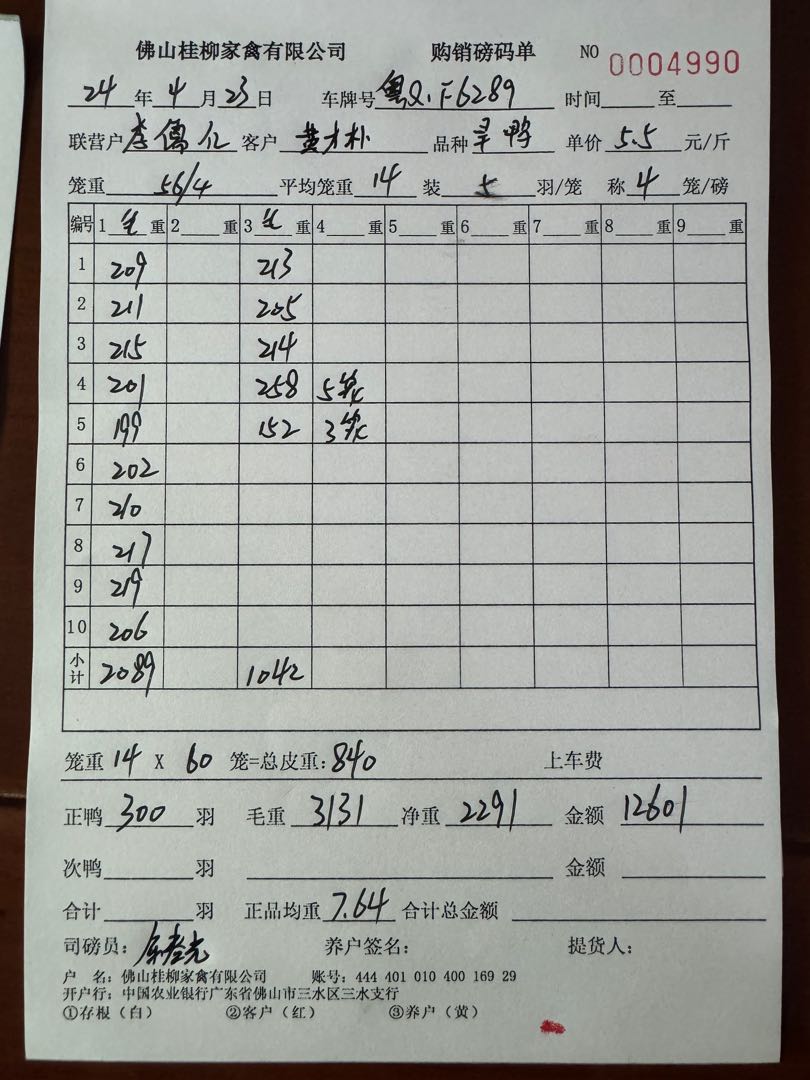 佛山桂柳家禽有限公司 购销磅码单 NO 0004990
24年4月23日 车牌号粤Q.F6289 时间 至
联营户李 客户 黄才朴 品种 旱鸭 单价 5.5 元/斤
笼重 56/4 平均笼重 14 装 5 羽/笼 称 4 笼/磅
编号 1 毛 重 2 重 3 毛 重 4 重 5 重 6 重 7 重 8 重 9 重
1 209 213
2 211 205
3 215 214
4 201 258 5笼
5 199 152 3笼
6 202
7 210
8 217
9 219
10 206
小计 2089 1042
笼重 14 X 60 笼=总皮重: 840 上车费
正鸭 300 羽 毛重 3131 净重 2291 金额 12601
次鸭 羽 金额
合计 羽 正品均重 7.64 合计总金额
司磅员: 养户签名: 提货人:
户 名: 佛山桂柳家禽有限公司 账号: 444 401 010 400 169 29
开户行: 中国农业银行广东省佛山市三水区三水支行
①存根（白） ②客户（红） ③养户（黄）